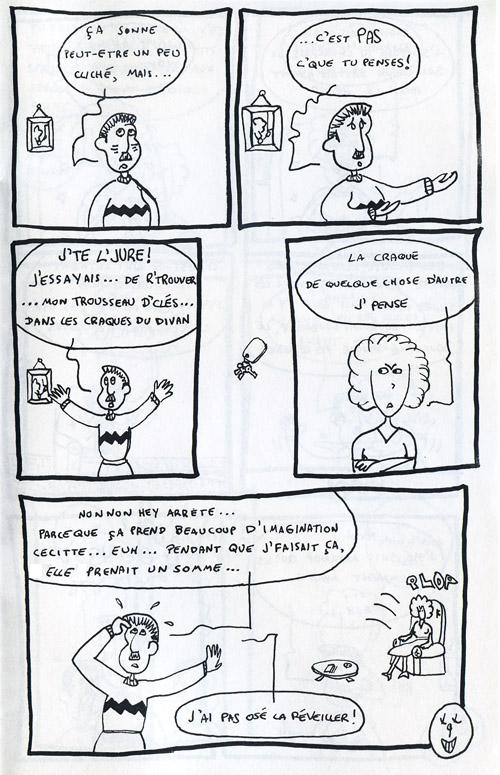 ÇA SONNE
PEUT-ETRE UN PEU
CLICHÉ, MAIS...
...C'EST PAS
C'QUE TU PENSES!
J'TE L'JURE!
J'ESSAYAIS... DE R'TROUVER
...MON TROUSSEAU D'CLÉS...
DANS LES CRAQUES DU DIVAN
LA CRAQUE
DE QUELQUE CHOSE D'AUTRE
J'PENSE
NON NON HEY ARRÊTE...
PARCEQUE ÇA PREND BEAUCOUP D'IMAGINATION
CECITTE... EUH... PENDANT QUE J'FAISAIT ÇA,
ELLE PRENAIT UN SOMME...
PLOP
J'AI PAS OSÉ LA RÉVEILLER!